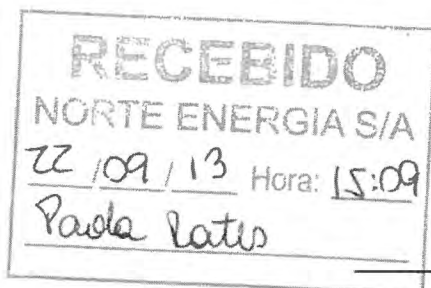 RECEBIDO
NORTE ENERGIA S/A
22/09/13 Hora: 15:09
Paola